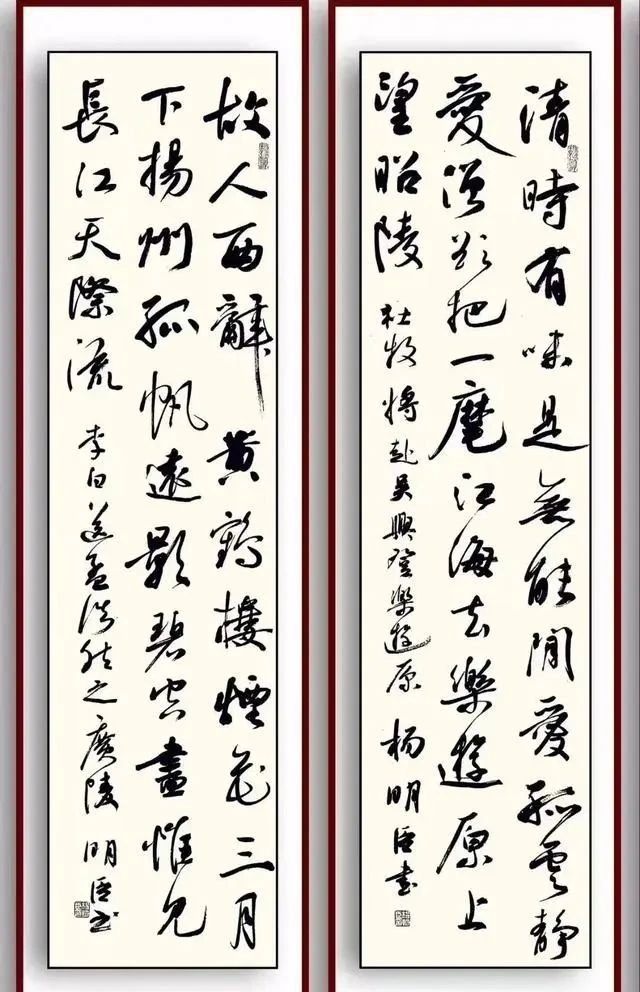 清時有味是無能閒愛孤雲静
愛僧欲把一麾江海去樂遊原上
望昭陵 杜牧將赴吳興登樂遊原 杨明臣書
故人西辭黄鶴樓煙花三月
下揚州孤帆遠影碧空盡惟見
長江天際流 李白送孟浩然之廣陵 明臣書